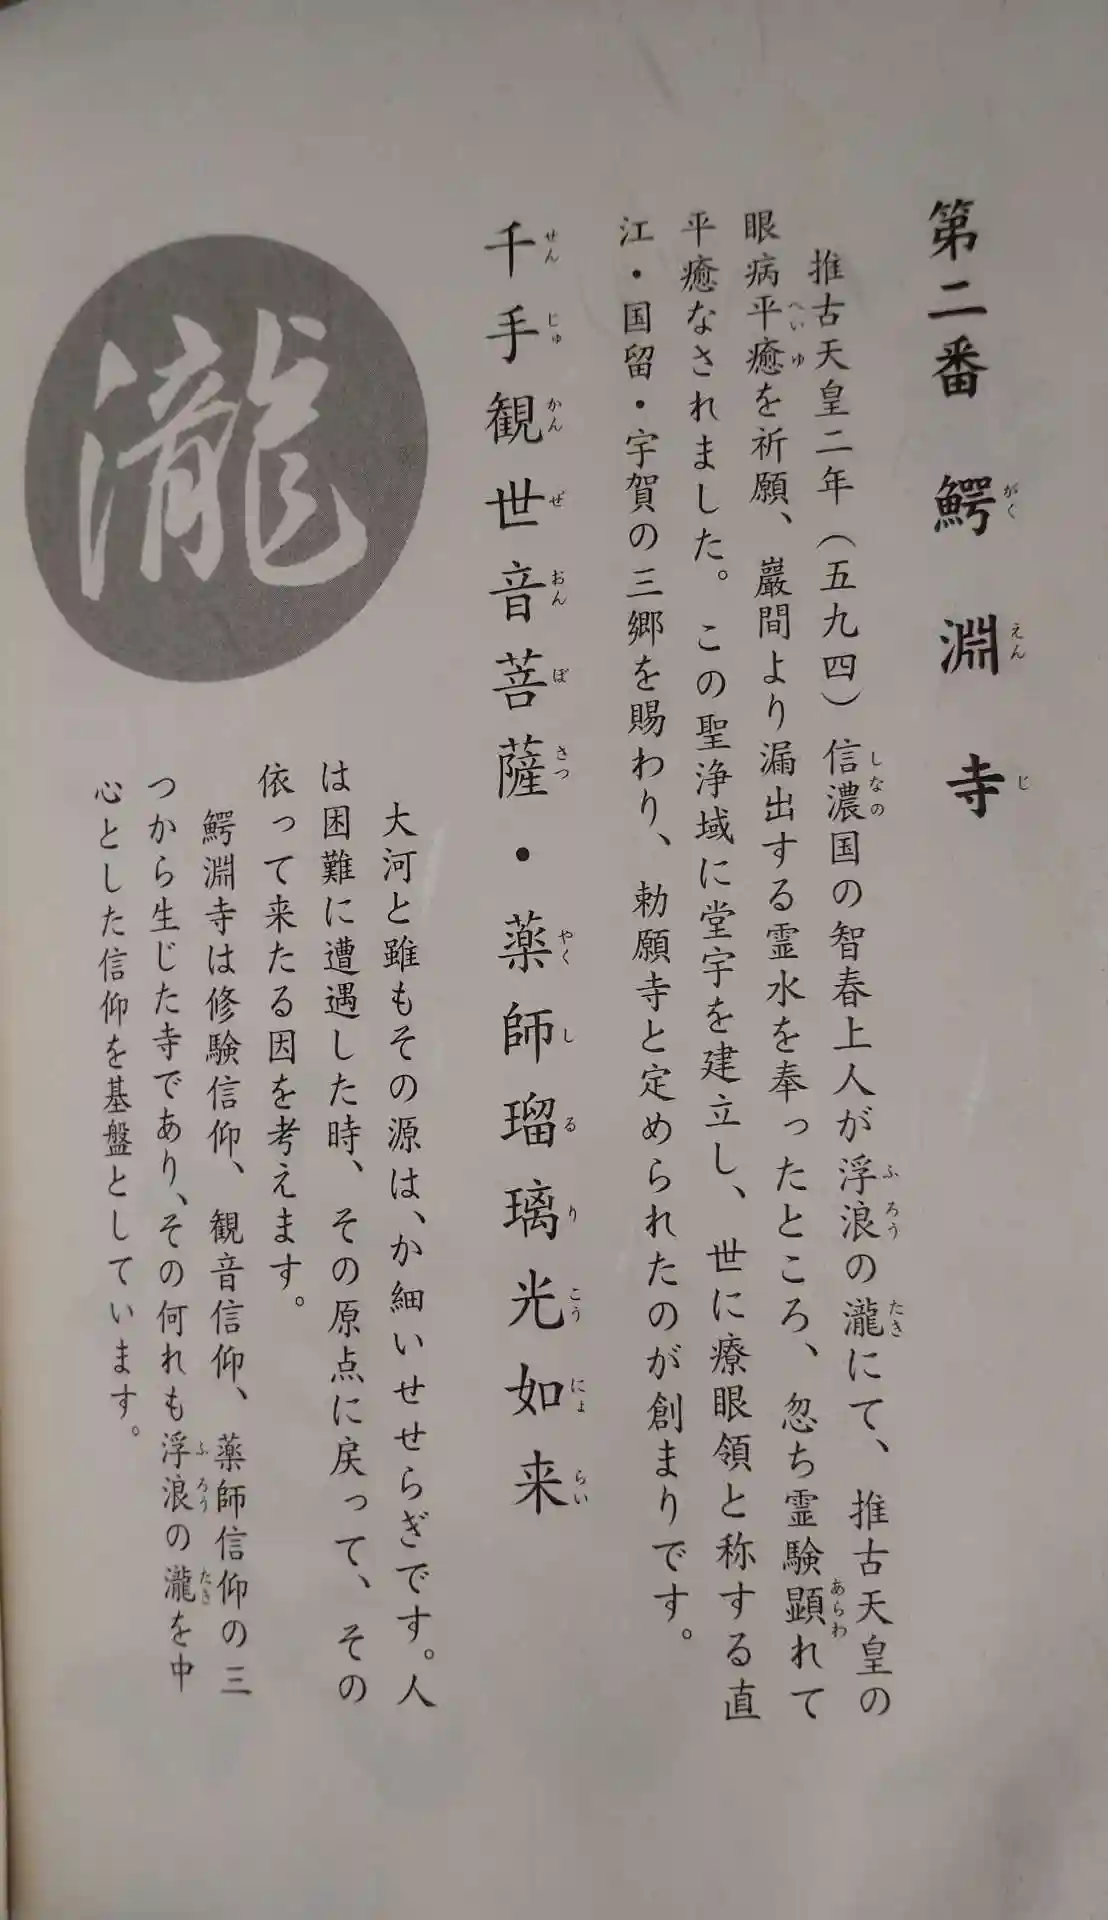 第二番 鰐淵寺
推古天皇二年（五九四）信濃国の智春上人が浮浪の瀧にて、推古天皇の
眼病平癒を祈願、巖間より漏出する霊水を奉ったところ、忽ち霊験顕れて
平癒なされました。この聖浄域に堂宇を建立し、世に療眼領と称する直
江・国留・宇賀の三郷を賜わり、勅願寺と定められたのが創まりです。
千手観世音菩薩・薬師瑠璃光如来
大河と雖もその源は、か細いせせらぎです。人
は困難に遭遇した時、その原点に戻って、その
依って来たる因を考えます。
鰐淵寺は修験信仰、観音信仰、薬師信仰の三
つから生じた寺であり、その何れも浮浪の瀧を中
心とした信仰を基盤としています。
瀧